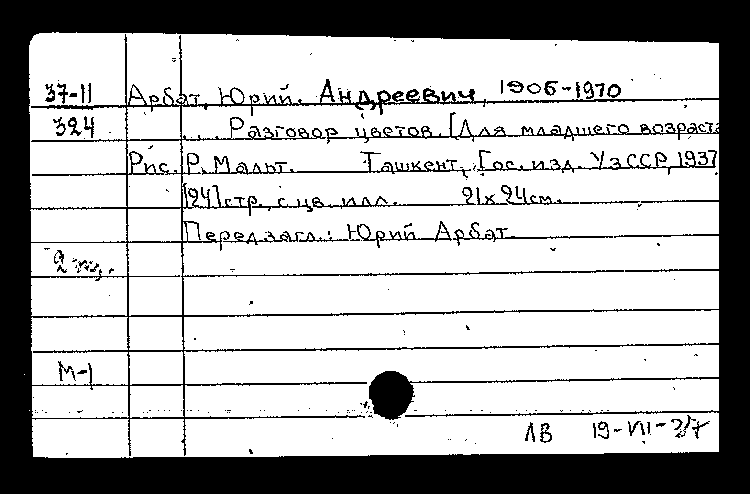 37-11 Арбат, Юрий. Андреевич, 1905-1970
324 ... Разговор цветов. [Для младшего возраста
Рис. Р. Мальт. Ташкент, Гос. изд. УзССР, 1937
[24] стр. с цв. илл. 21х24см.
Перед загл.: Юрий Арбат.
2 экз.
М-1
ЛВ 19-VII-37